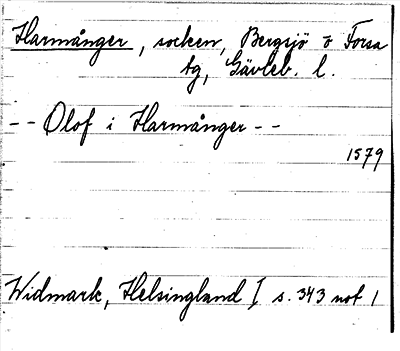 Harmånger, socken, Bergsjö o Forsa
tg, Gävleb. l.
-- Olof i Harmånger --
1579
Widmark, Helsingland I s. 343 not 1